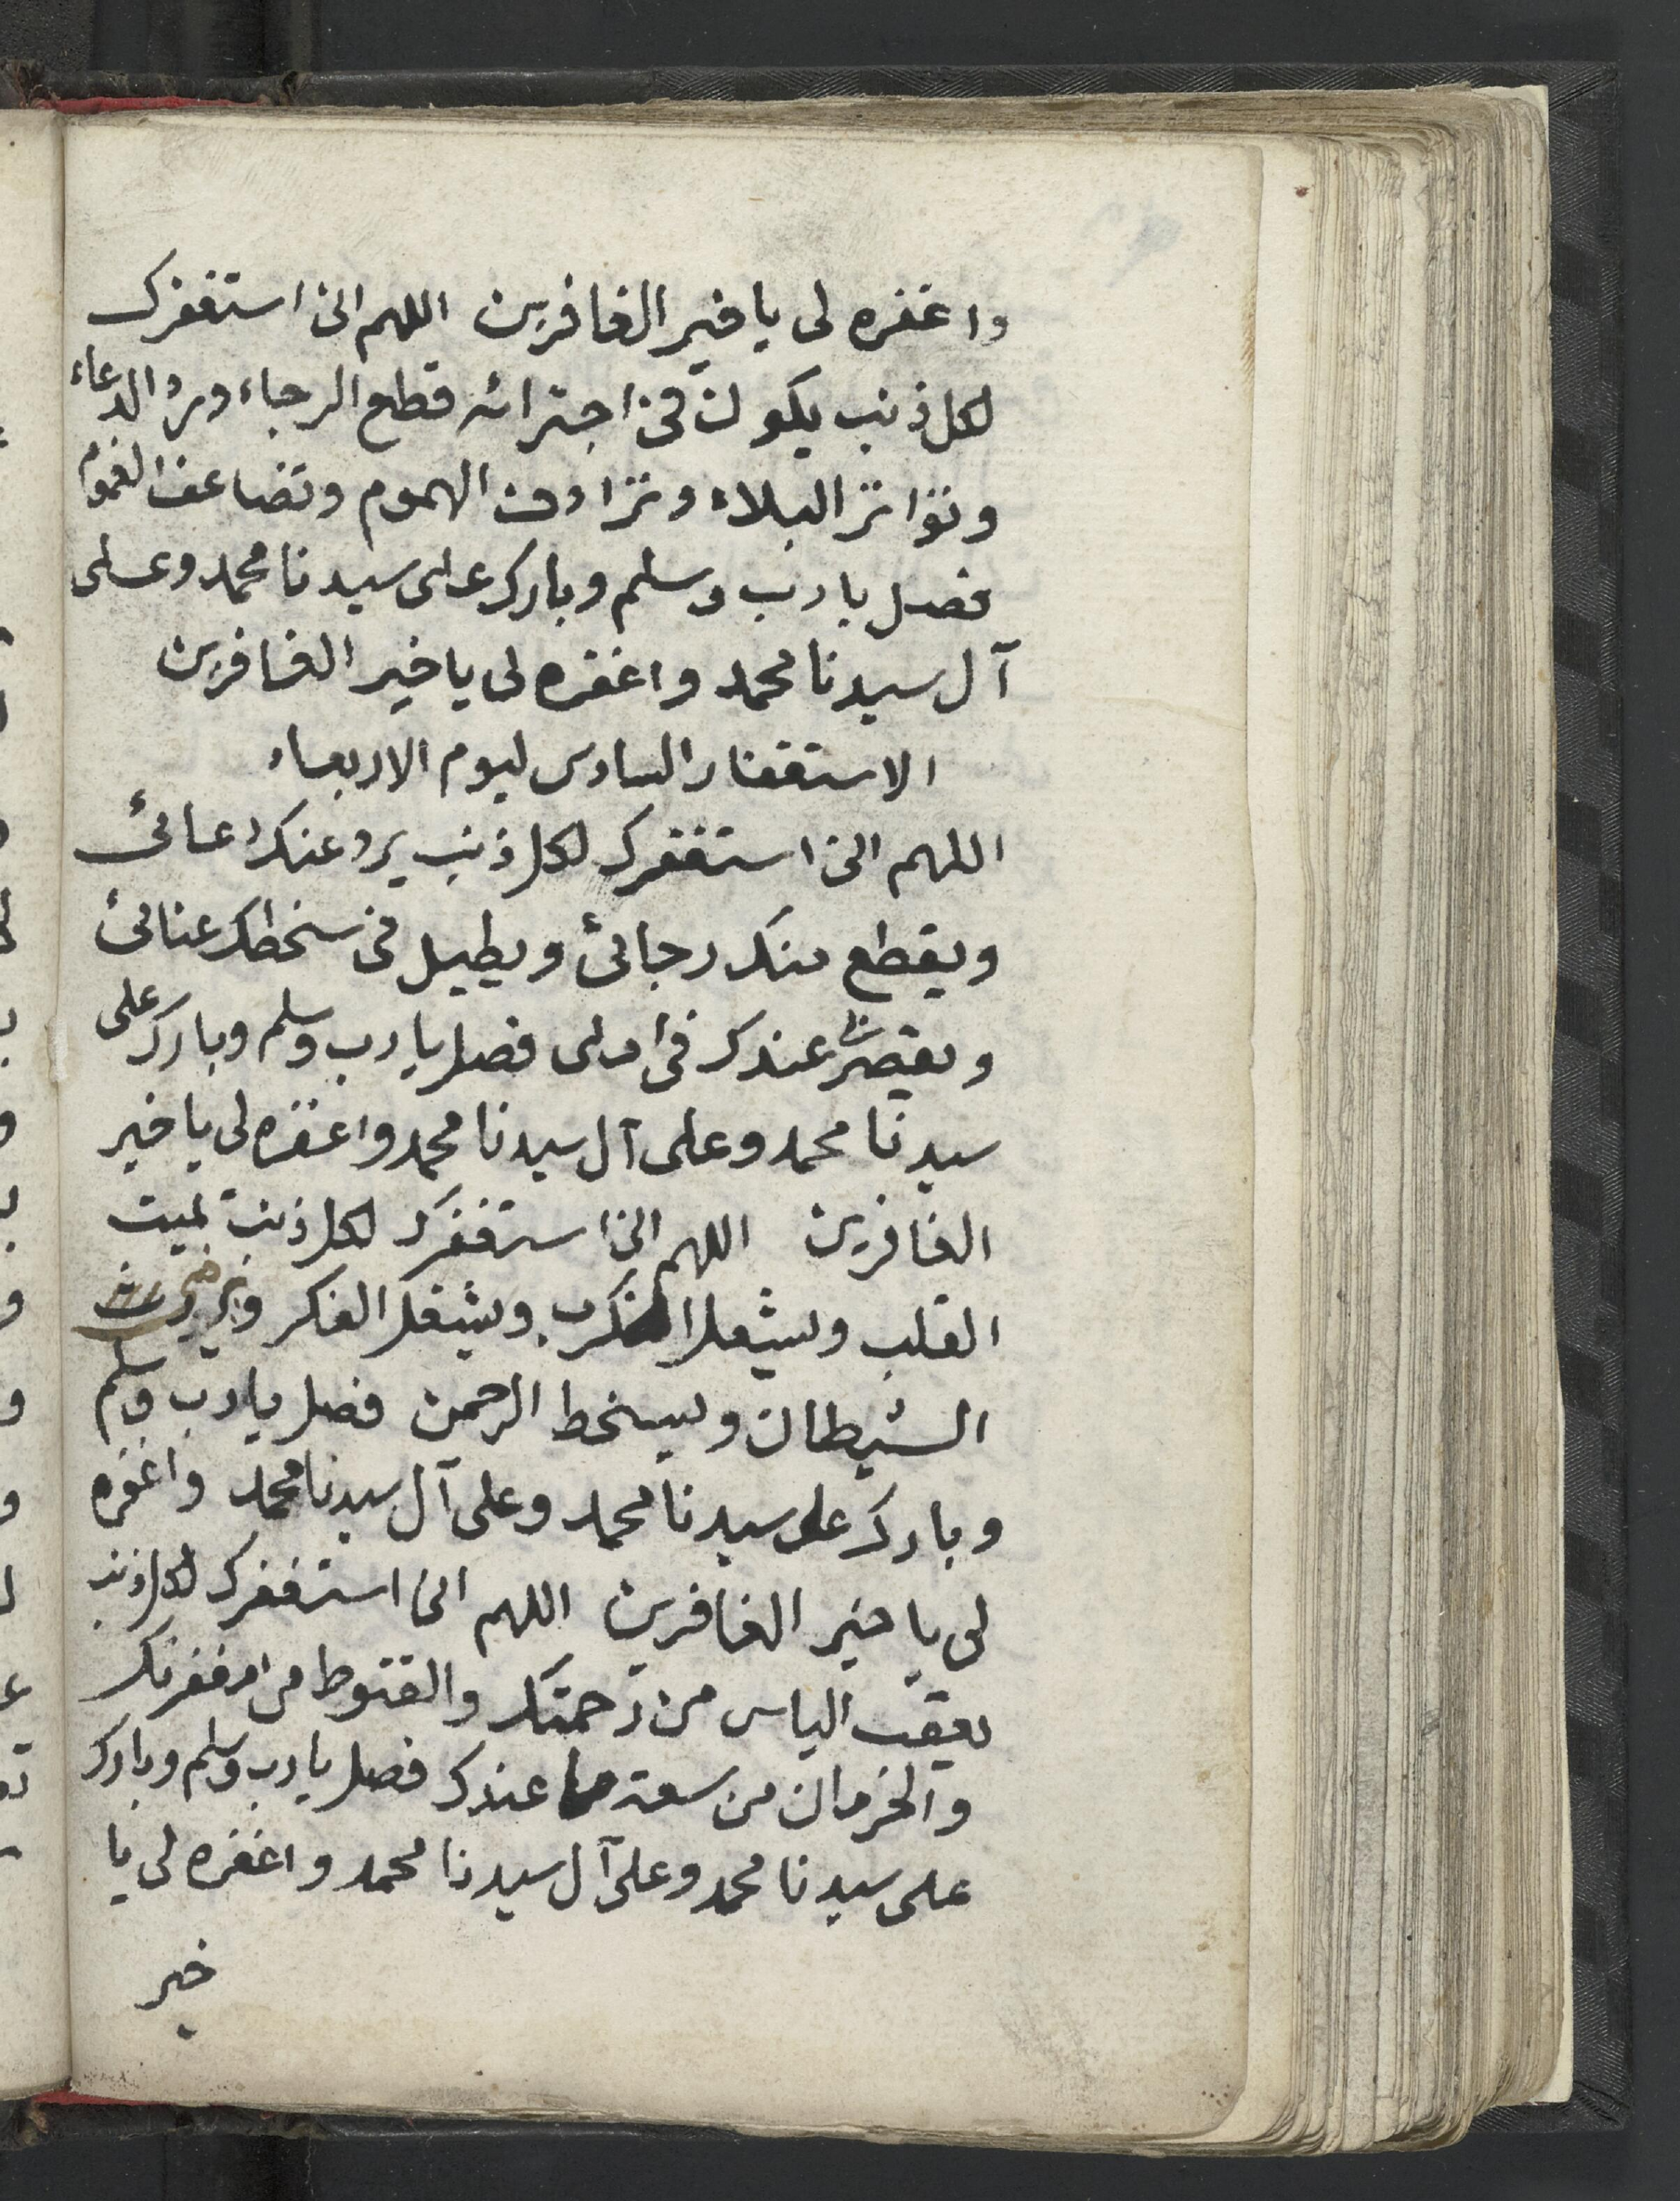 واغفره لى يا خير الغافرين اللهم انى استغفرك
لكل ذنب يكون فى اجترائه قطع الرجاء ورد الدعاء
وتواتر البلاء وترادف الهموم وتضاعف الغموم
فصل يا رب وسلم وبارك على سيدنا محمد وعلى
آل سيدنا محمد واغفره لى يا خير الغافرين
الاستغفار السادس ليوم الاربعاء
اللهم انى استغفرك لكل ذنب يرد عنك دعائى
ويقطع منك رجائى ويطيل فى سخطك عنائى
ويقصر عندك املى فصل يا رب وسلم وبارك على
سيدنا محمد وعلى آل سيدنا محمد واغفره لى يا خير
الغافرين اللهم انى استغفرك لكل ذنب يميت
القلب ويشعل الكرب ويشغل الفكر ويرضى
الشيطان ويسخط الرحمن فصل يا رب وسلم
وبارك على سيدنا محمد وعلى آل سيدنا محمد واغفره
لى يا خير الغافرين اللهم انى استغفرك لكل ذنب
يعقب الياس من رحمتك والقنوط من مغفرتك
والحرمان من سعة ما عندك فصل يا رب وسلم وبارك
على سيدنا محمد وعلى آل سيدنا محمد واغفره لى يا
خير